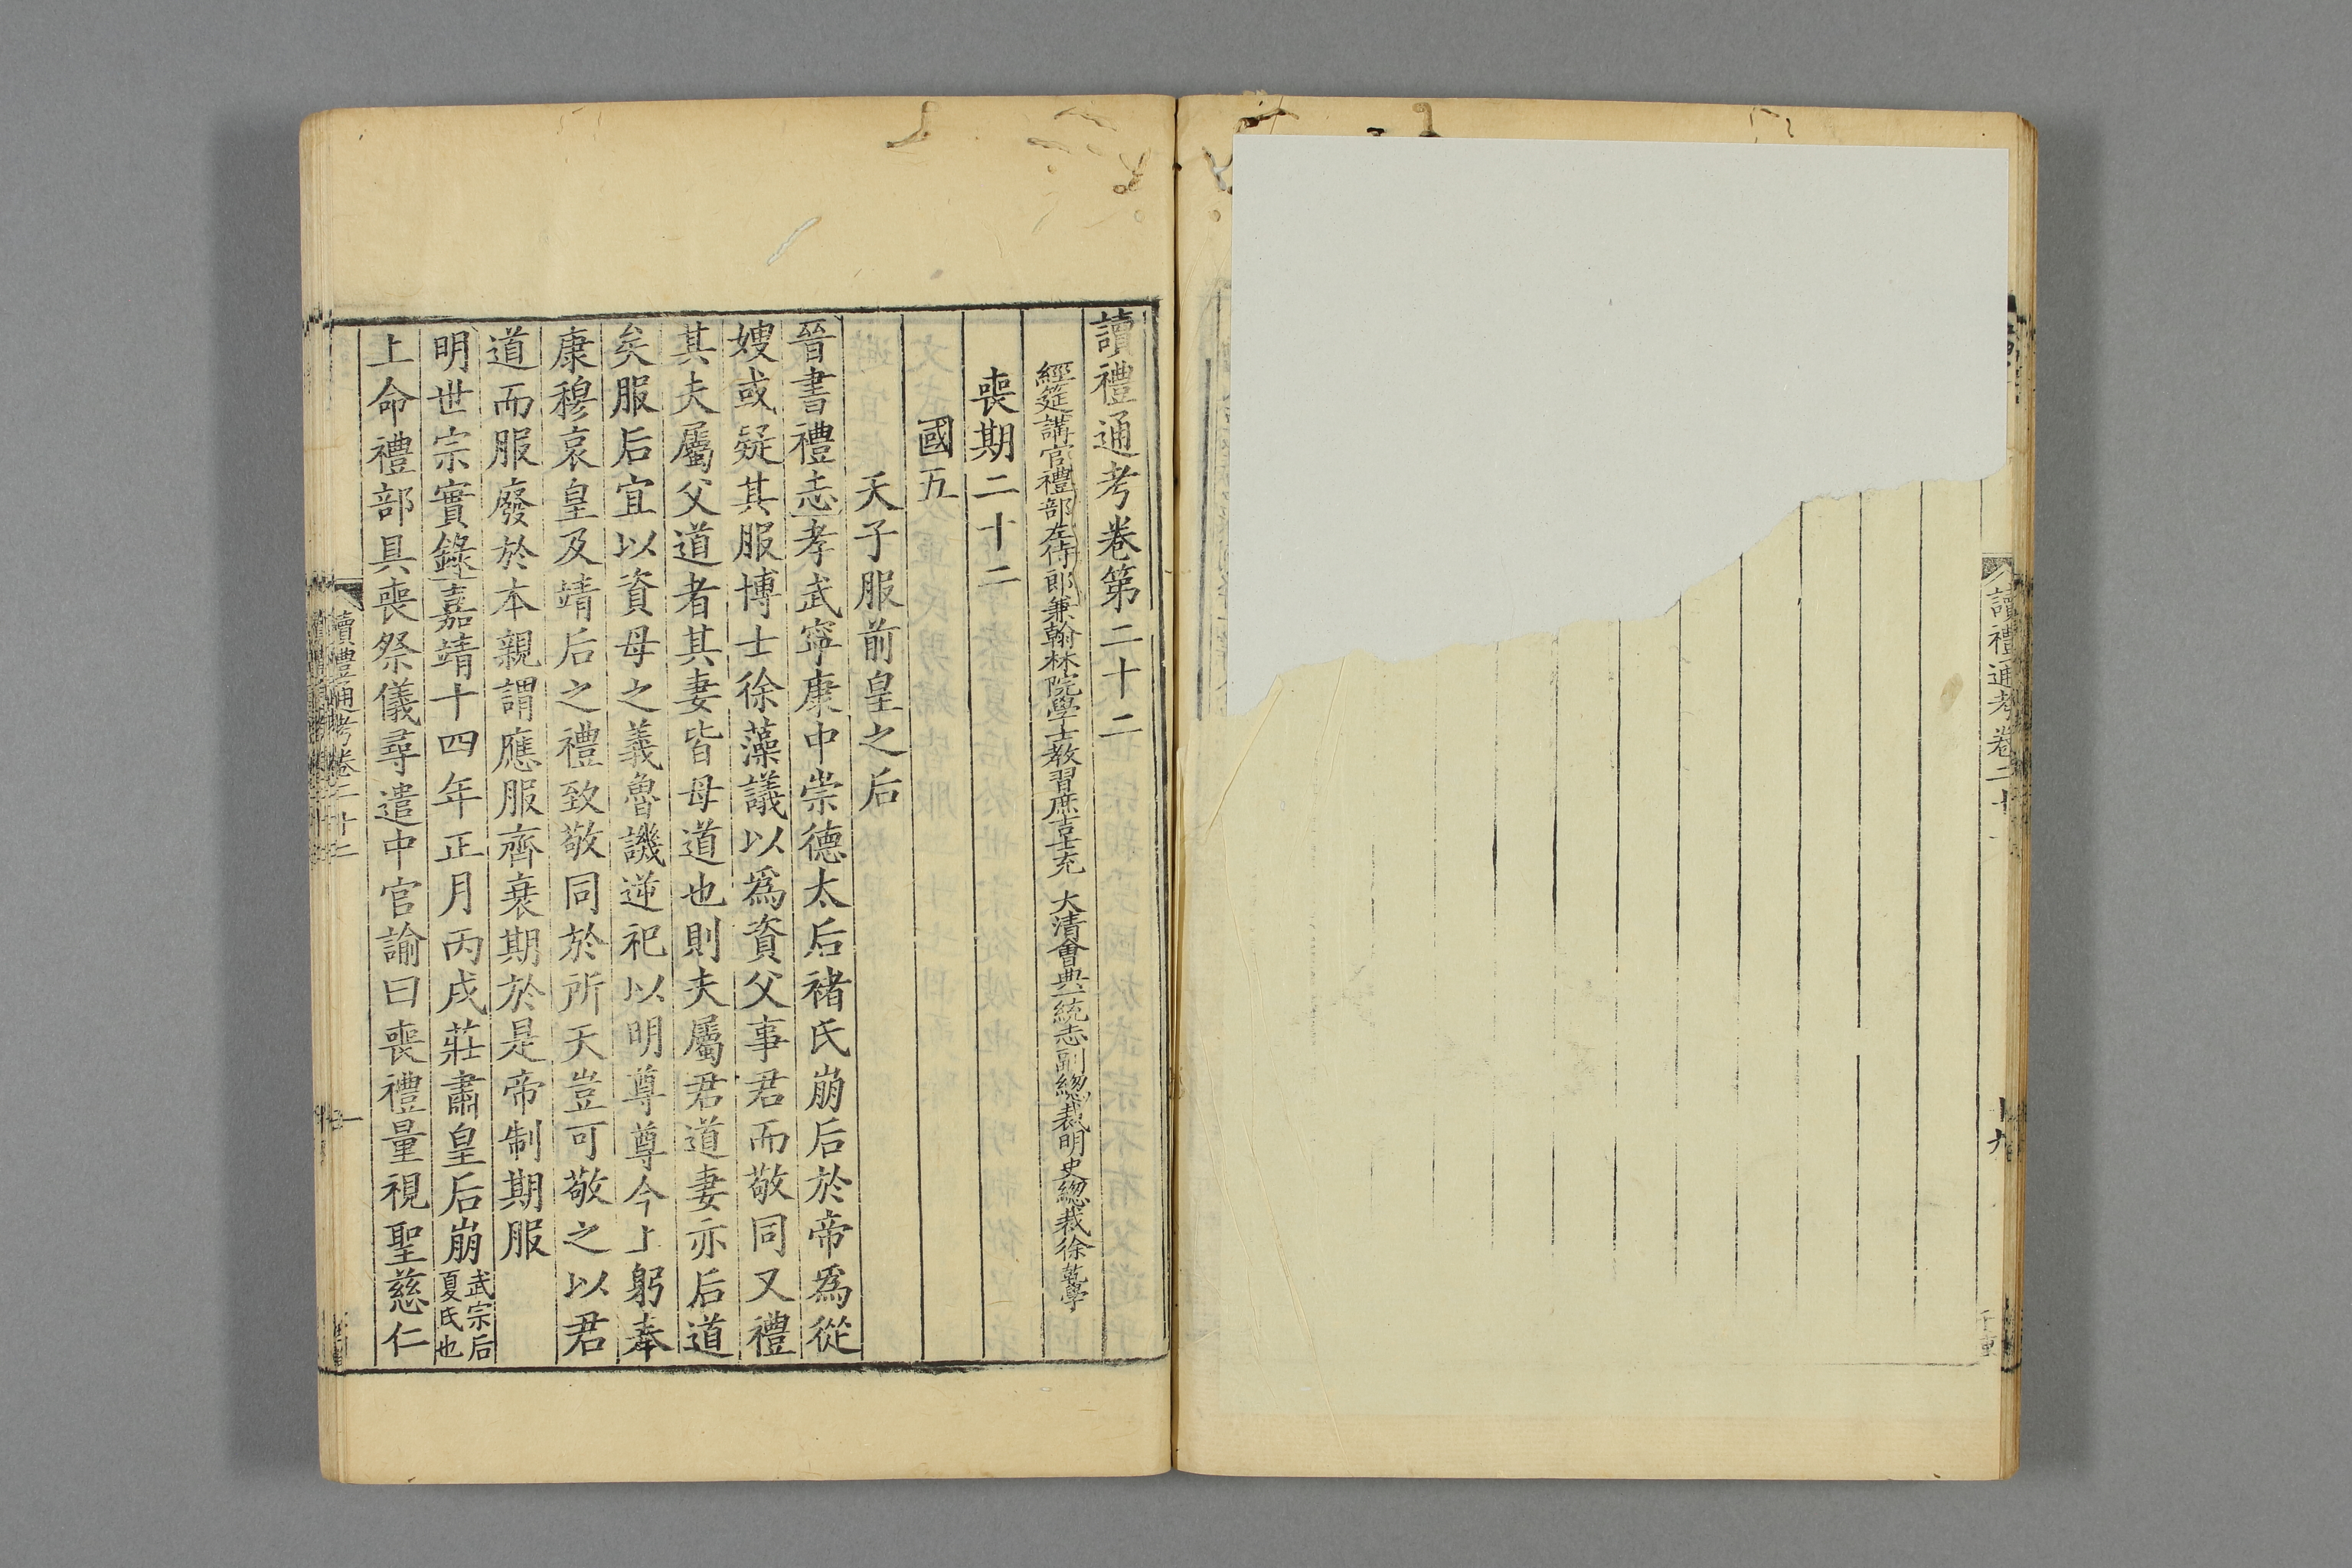 讀禮通考卷二十
讀禮通考卷第二十二
經筵講官禮部左侍郎兼翰林院學士教習庶吉士充 大清會典一統志副總裁明史總裁徐乾學
喪期二十二
國五
天子服前皇之后
晉書禮志孝武寧康中崇德太后褚氏崩后於帝爲從
嫂或疑其服博士徐藻議以爲資父事君而敬同又禮
其夫屬父道者其妻皆母道也則夫屬君道妻亦后道
矣服后宜以資母之義魯譏逆祀以明尊尊今上躬奉
康穆哀皇及靖后之禮致敬同於所天豈可敬之以君
道而服廢於本親謂應服齊衰期於是帝制期服
明世宗實錄嘉靖十四年正月丙戌莊肅皇后崩武宗后夏氏也
上命禮部具喪祭儀尋遣中官諭曰喪禮量視聖慈仁
讀禮通考卷二十二
一